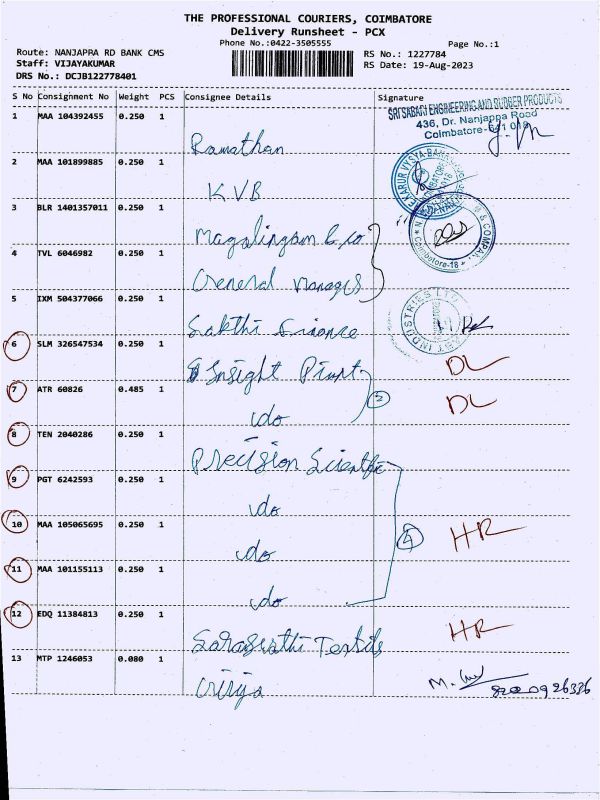 THE PROFESSIONAL COURIERS, COIMBATORE
Delivery Runsheet - PCX
Phone No.:0422-3505555
Page No.:1
Route: NANJAPPA RD BANK CMS
RS No.: 1227784
Staff: VIJAYAKUMAR
RS Date: 19-Aug-2023
DRS No.: DCJB122778401
S No Consignment No Weight PCS Consignee Details Signature
SRI SABARI ENGINEERING AND RUBBER PRODUCTS
436, Dr. Nanjappa Road
Coimbatore-641 018
1 MAA 104392455 0.250 1
Ramathan
2 MAA 101899885 0.250 1
KVB
3 BLR 1401357011 0.250 1
Magalingam & co
Coimbatore-18
4 TVL 6046982 0.250 1
General Manager
5 IXM 504377066 0.250 1
Sakthi Finance
6 SLM 326547534 0.250 1
Insight Print
DL
7 ATR 60826 0.485 1
do
2
DL
8 TEN 2040286 0.250 1
Precision Scientific
9 PGT 6242593 0.250 1
do
10 MAA 105065695 0.250 1
do
4
HR
11 MAA 101155113 0.250 1
do
12 EDQ 11384813 0.250 1
Textile
HR
13 MTP 1246053 0.080 1
M.